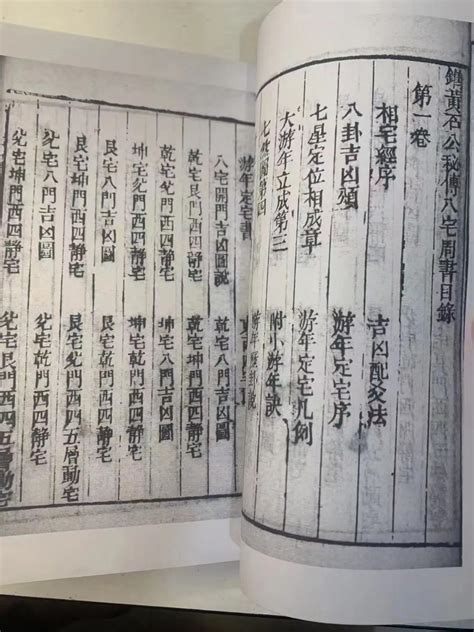 鐫黃石公秘傳八宅周書目錄
第一卷
相宅經序 吉凶配爻法
八卦吉凶頌 游年定宅序
七星定位相成章 游年定宅凡例
大游年立成第三 附小游年訣
第四 游年
游年定宅書
八宅開門吉凶圖說 乾宅八門吉凶圖
乾宅艮門西四靜宅 乾宅坤門西四靜宅
乾宅兌門西四靜宅 坤宅八門吉凶圖
坤宅艮門西四靜宅 坤宅乾門西四靜宅
艮宅八門吉凶圖 艮宅乾門西四靜宅
艮宅坤門西四靜宅 艮宅兌門西四五層動宅
兌宅八門吉凶圖 兌宅乾門西四靜宅
兌宅坤門西四靜宅 兌宅艮門西四五層動宅